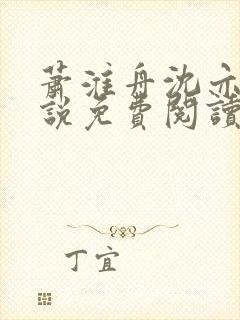 蕭淮舟沈亦
說免費閱讀
丁宜